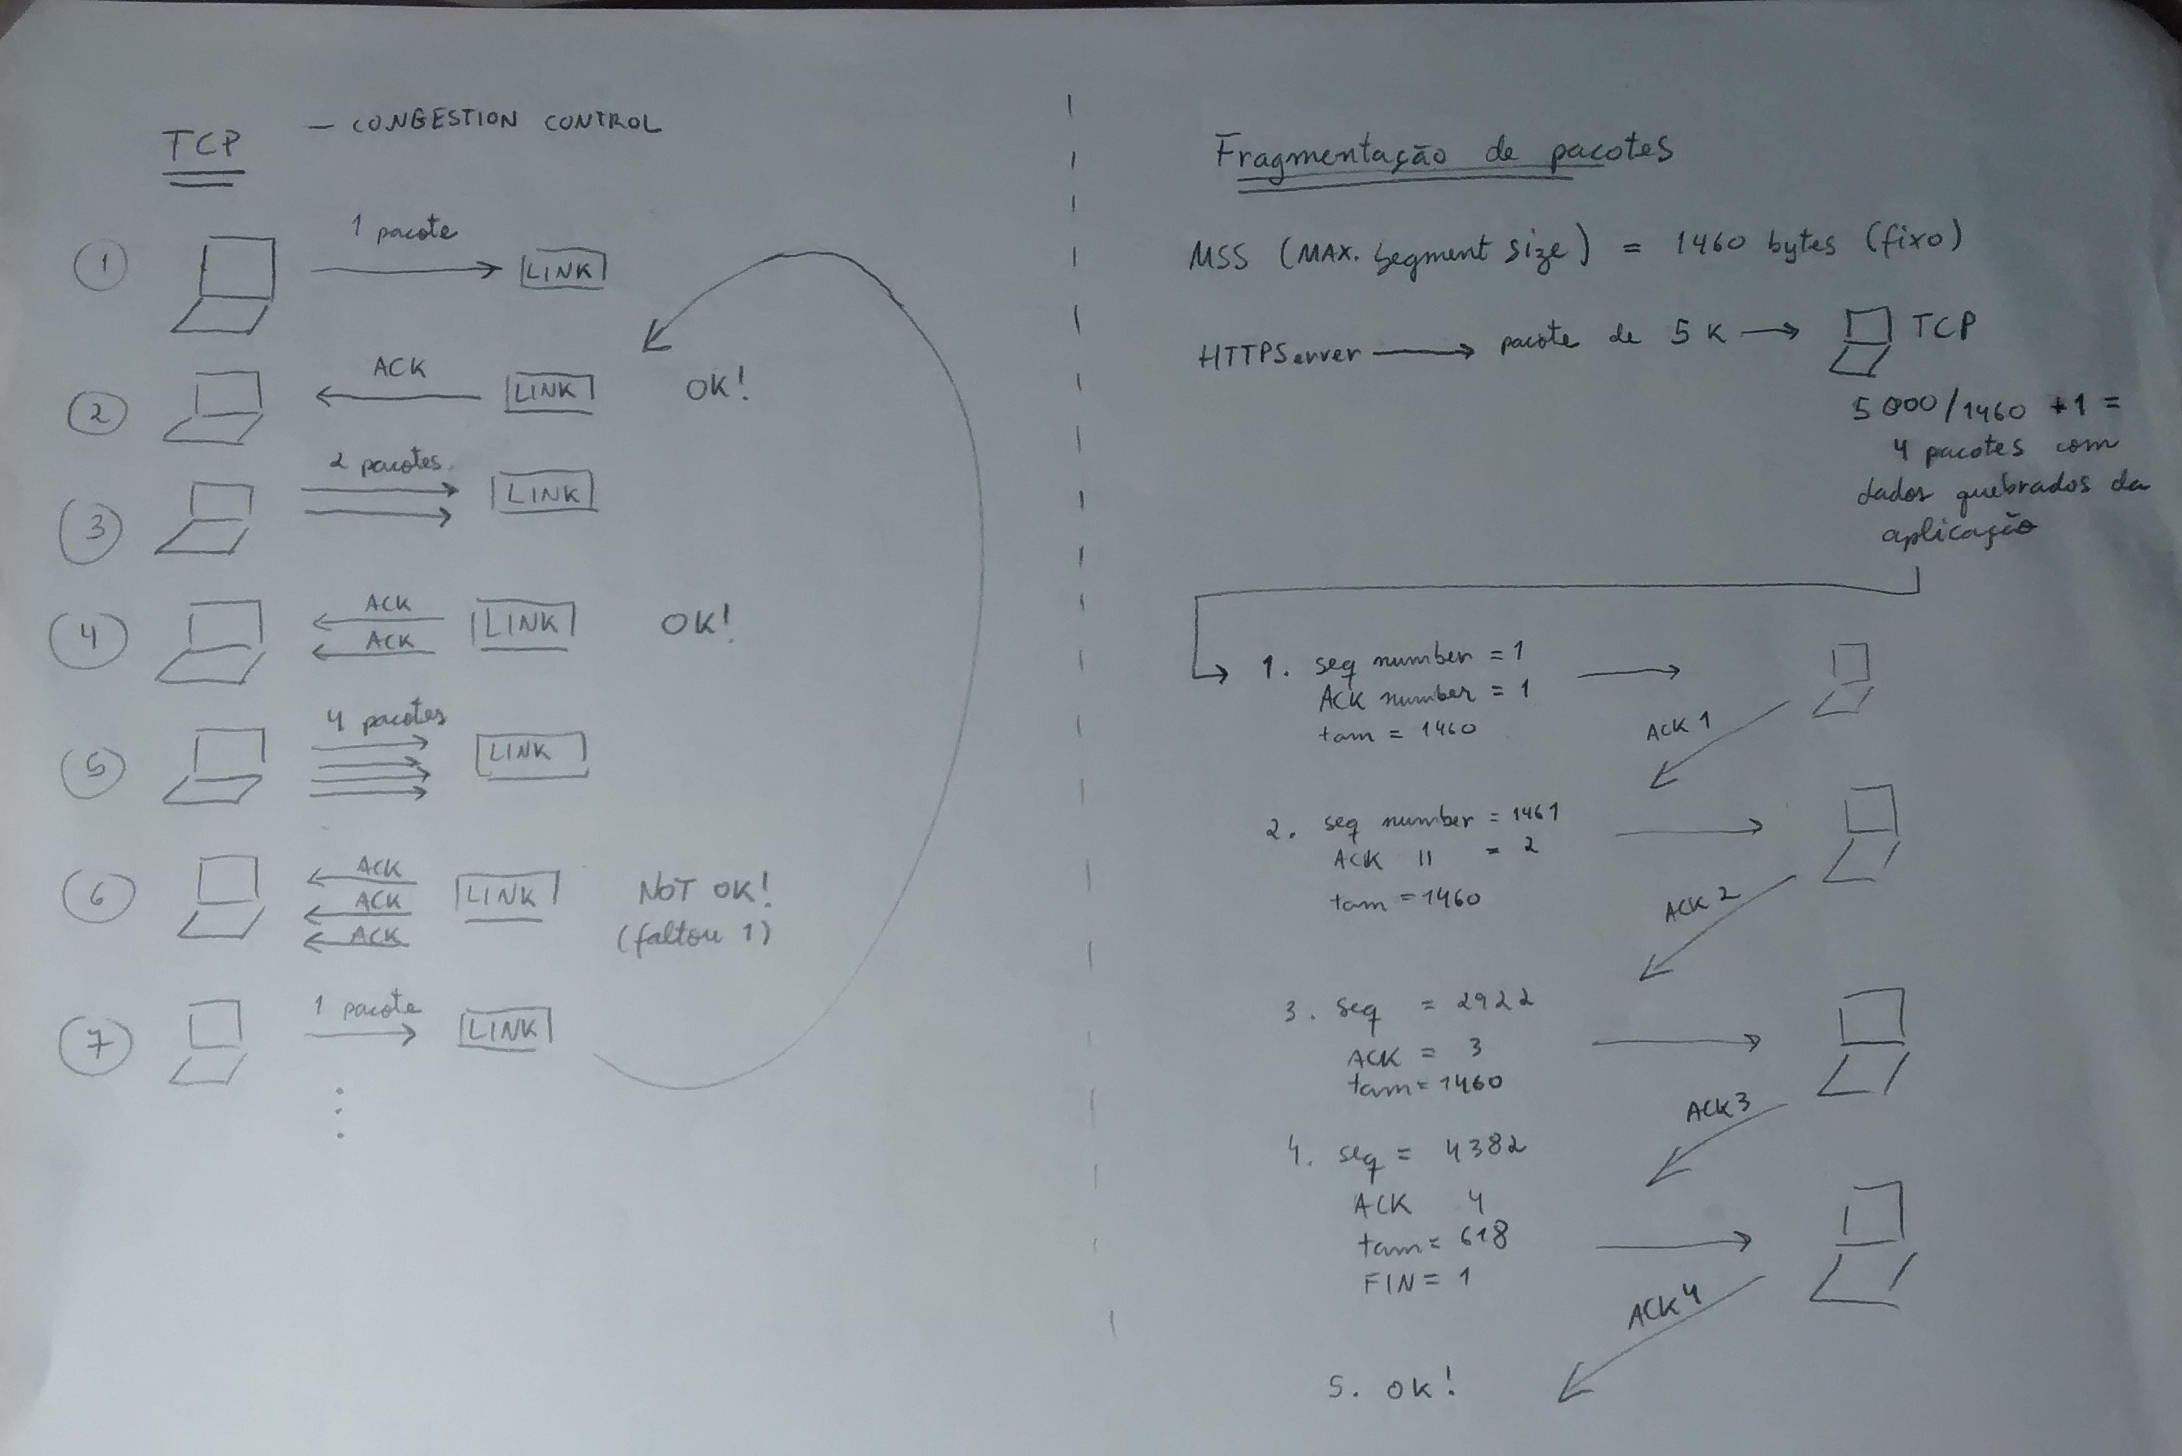 TCP — CONGESTION CONTROL
1 1 pacote LINK
2 ACK LINK OK!
3 2 pacotes. LINK
4 ACK LINK OK!
ACK
5 4 pacotes LINK
6 ACK LINK NOT OK!
ACK (faltou 1)
ACK
7 1 pacote LINK
Fragmentação de pacotes
MSS (MAX. Segment Size) = 1460 bytes (fixo)
HTTPServer pacote de 5 K TCP
5 000/1460 +1 =
4 pacotes com
dados quebrados da
aplicação
1. seq number = 1
ACK number = 1
tam = 1460
ACK 1
2. seq number = 1461
ACK 11 = 2
tam = 1460
ACK 2
3. seq = 2922
ACK = 3
tam = 1460
ACK 3
4. seq = 4382
ACK 4
tam = 618
FIN = 1
ACK 4
5. OK!